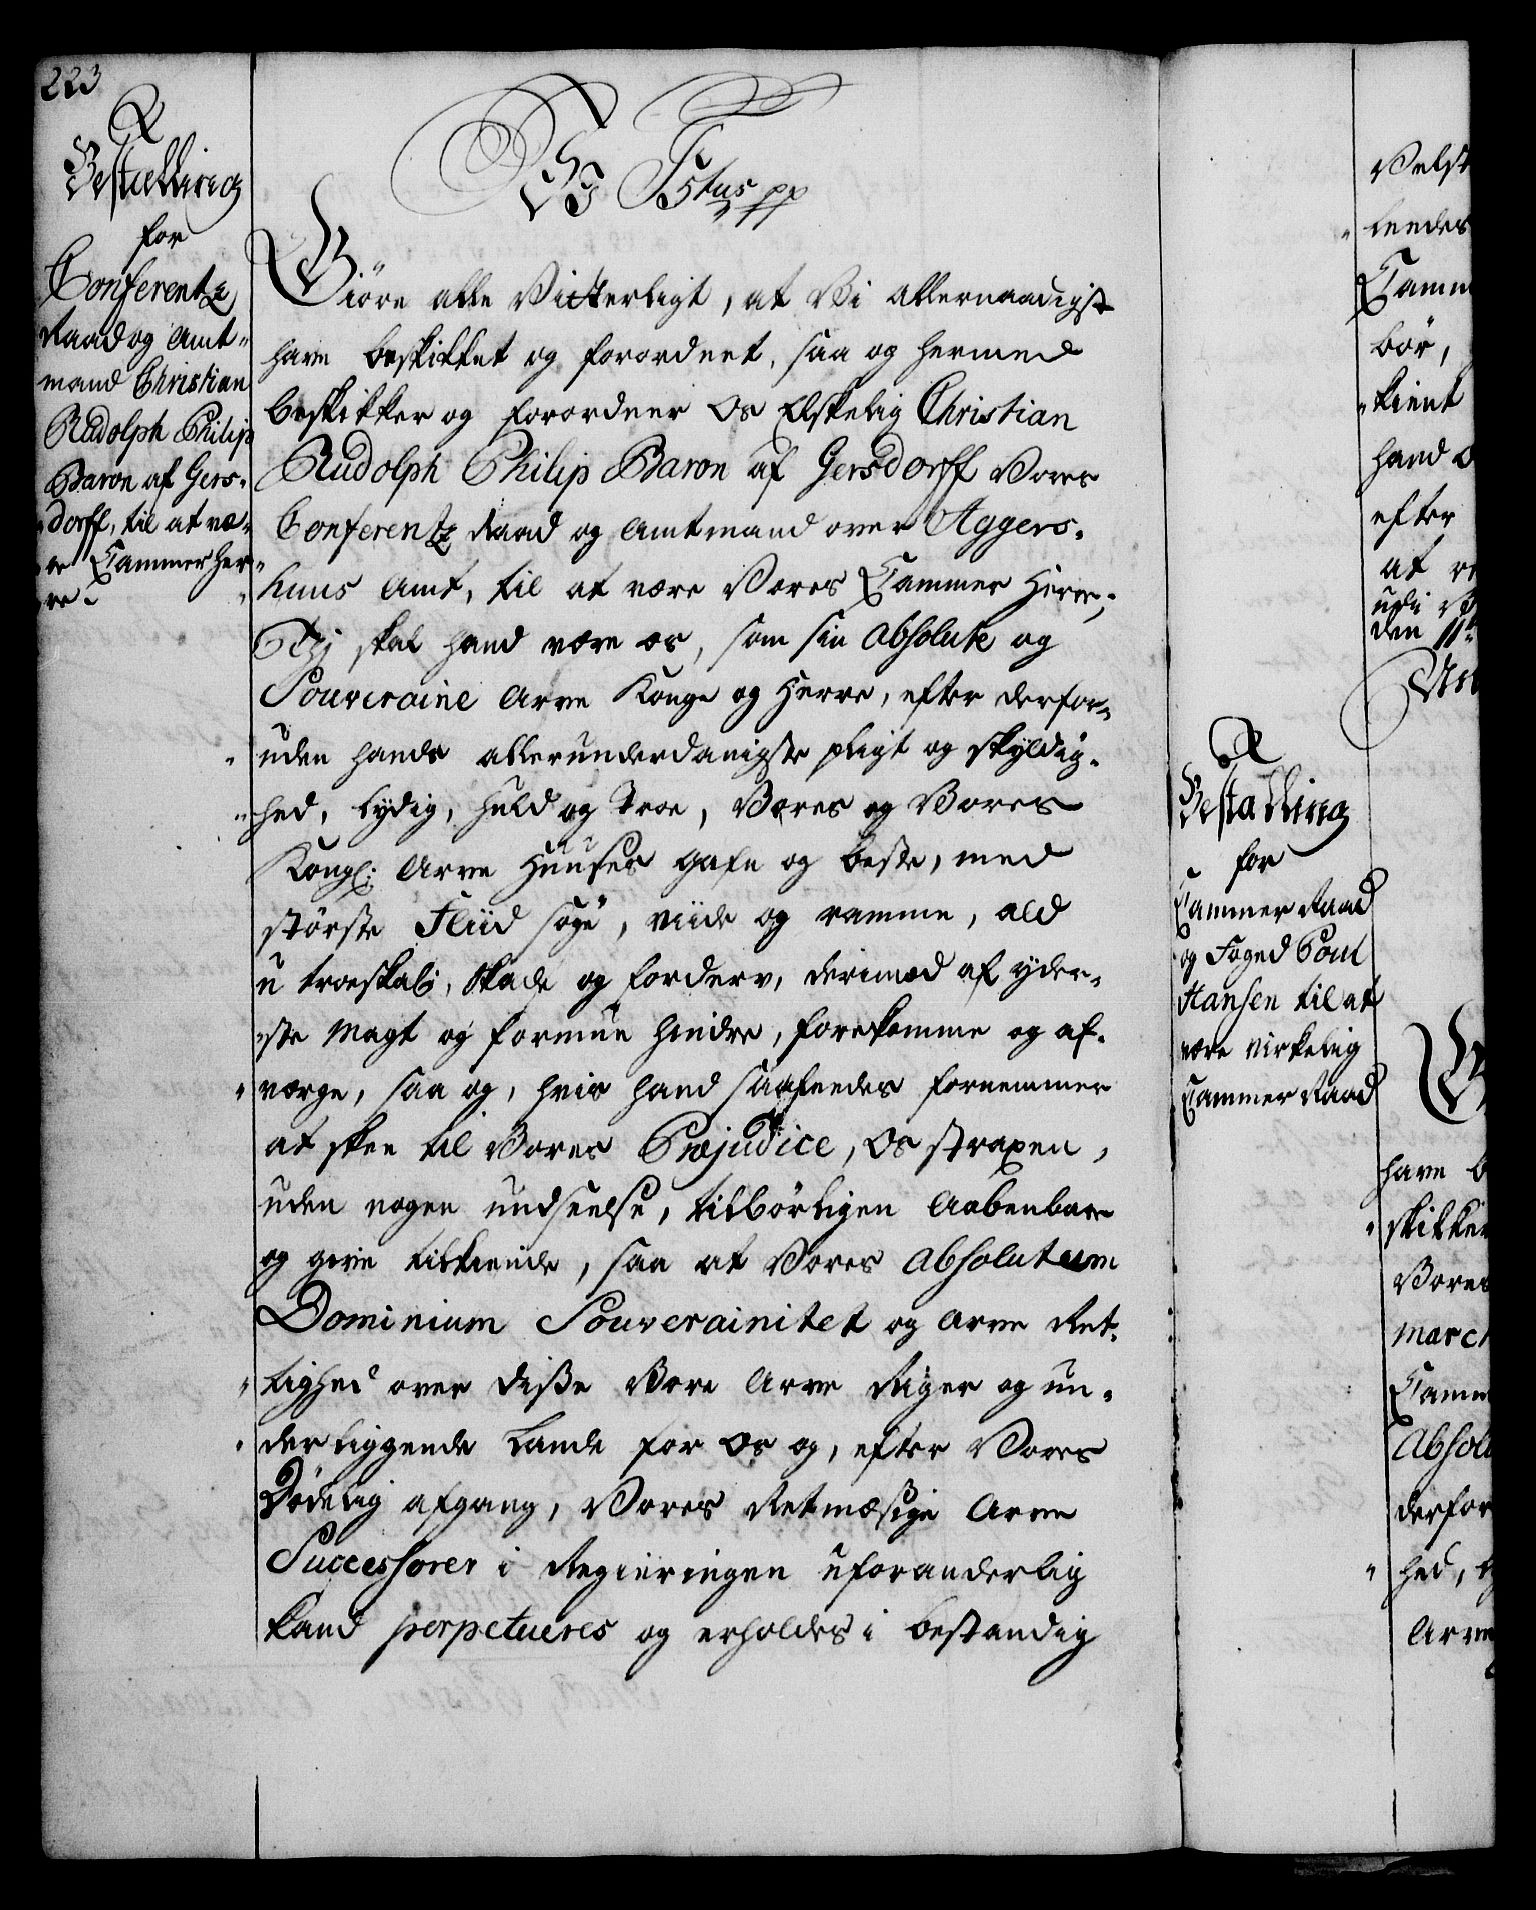 223
Bestalling
for
Conferentz
Raad og Amt-
mand Christian
Rudolph Philip
Baron af Gers-
dorff, til at væ-
re Cammer Her-
re.
Tit: pp
Giöre alle Vitterligt, at Vi allernaadigst
have beskikket og forordnet, saa og hermed
beskikker og forordner Os Elskelig Christian
Rudolph Philip Baron af Gersdorff Vores
Conferentz Raad og Amtmand over Aggers-
huus Amt, til at være Vores Cammer Herre;
Thj skal hand være os, som sin absolute og
Souveraine Arve Konge og Herre, efter derfor-
uden hands allerunderdanigste pligt og skyldig-
hed, lydig, huld og Troe, Vores og Vores
Kongl: Arve Huuses gafn og beste, med
störste Fliid söge, viide og ramme, ald
u troeskab, Skade og forderv, derimod af yder-
ste Magt og formue hindre, forekomme og af-
værge, saa og, hvis hand saafendes fornemmer
at skee til Vores Præjudice, Os straxen,
uden nogen undseelse, tilbörligen Aabenbare
og give tilkiende, saa at Vores absolutum
Dominium Souverainitet og Arve Ret-
tighed over diße Vore Arve Riger og un-
derliggende Lande for Os og, efter Vores
Dödelig afgang, Vores Retmæßige Arve
Successorer i Regieringen uforanderlig
kand perpetueres og erholdes i bestandig
Bestalling
for
Cammer Raad
og Foged Poul
Hansen til at
være virkelig
Cammer Raad
Velst
leedes
Camm
bör,
kient
hand O
efter
at re
udi
den 11te
have b
skikker
Vores
March
Camm
Absolu
derfor
hed, ly
Arve